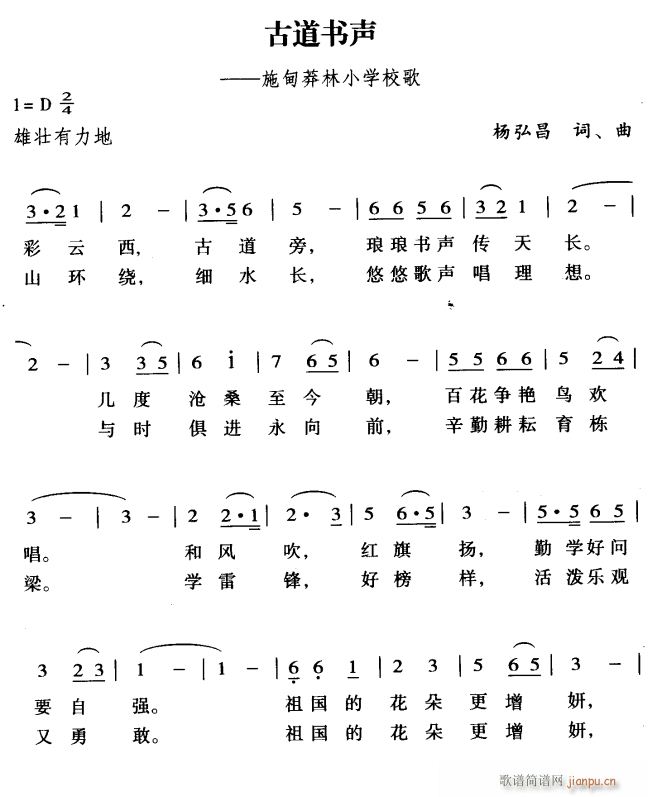 古道书声
——施甸莽林小学校歌
1=D 2/4
雄壮有力地
杨弘昌 词、曲
3·2 1 | 2 - | 3·5 6 | 5 - | 6 6 5 6 | 3 2 1 | 2 - |
彩云西, 古道旁, 琅琅书声传天长。
山环绕, 细水长, 悠悠歌声唱理想。
2 - | 3 3 5 | 6 i | 7 6 5 | 6 - | 5 5 6 6 | 5 2 4 |
几度沧桑至今朝, 百花争艳鸟欢
与时俱进永向前, 辛勤耕耘育栋
3 - | 3 - | 2 2·1 | 2· 3 | 5 6·5 | 3 - | 5·5 6 5 |
唱。 和风吹, 红旗扬, 勤学好问
梁。 学雷锋, 好榜样, 活泼乐观
3 2 3 | 1 - | 1 - | 6 6 1 | 2 3 | 5 6 5 | 3 - |
要自强。 祖国的花朵更增妍,
又勇敢。 祖国的花朵更增妍,
歌谱简谱网
jianpu.cn